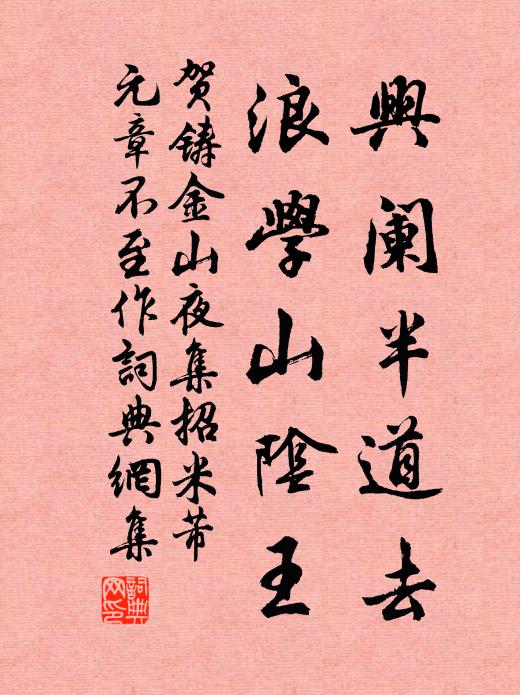 興闌半道去
浪學山陰王
贺鑄金山夜集招米芾
元章不至作詞典網集
詞典網印